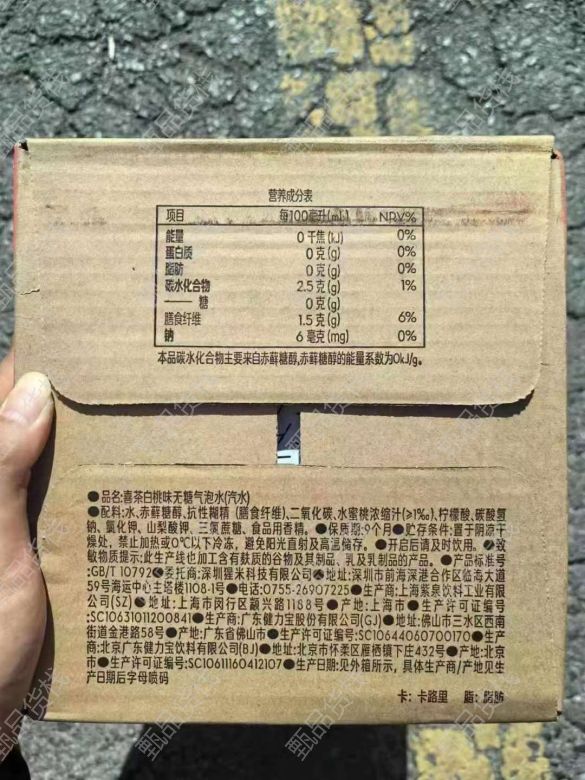 营养成分表
项目 每100毫升(mL) NRV%
能量 0 千焦(kJ) 0%
蛋白质 0 克(g) 0%
脂肪 0 克(g) 0%
碳水化合物 2.5 克(g) 1%
—— 糖 0 克(g)
膳食纤维 1.5 克(g) 6%
钠 6 毫克(mg) 0%
本品碳水化合物主要来自赤藓糖醇,赤藓糖醇的能量系数为0kJ/g。
●品名:喜茶白桃味无糖气泡水(汽水)
●配料:水、赤藓糖醇、抗性糊精(膳食纤维)、二氧化碳、水蜜桃浓缩汁(≥1‰)、柠檬酸、碳酸氢
钠、氯化钾、山梨酸钾、三氯蔗糖、食品用香精。●保质期:9个月●贮存条件:置于阴凉干
燥处,禁止加热或0℃以下冷冻,避免阳光直射及高温储存。●开启后请及时饮用。●致
敏物质提示:此生产线也加工含有麸质的谷物及其制品、乳及乳制品的产品。●产品标准号
:GB/T 10792●委托商:深圳猩米科技有限公司●地址:深圳市前海深港合作区临海大道
59号海运中心主塔楼1108-1号●电话:0755-26907225●生产商:上海紫泉饮料工业有限
公司(SZ)●地址:上海市闵行区颛兴路1188号●产地:上海市●生产许可证编号
:SC10631011200841●生产商:广东健力宝股份有限公司(GJ)●地址:佛山市三水区西南
街道金港路58号●产地:广东省佛山市●生产许可证编号:SC10644060700170●生产
商:北京广东健力宝饮料有限公司(BJ)●地址:北京市怀柔区雁栖镇下庄432号●产地:北京
市●生产许可证编号:SC10611160412107●生产日期:见外箱所示,具体生产商/产地见生
产日期后字母喷码
卡:卡路里 脂:脂肪
甄品货栈